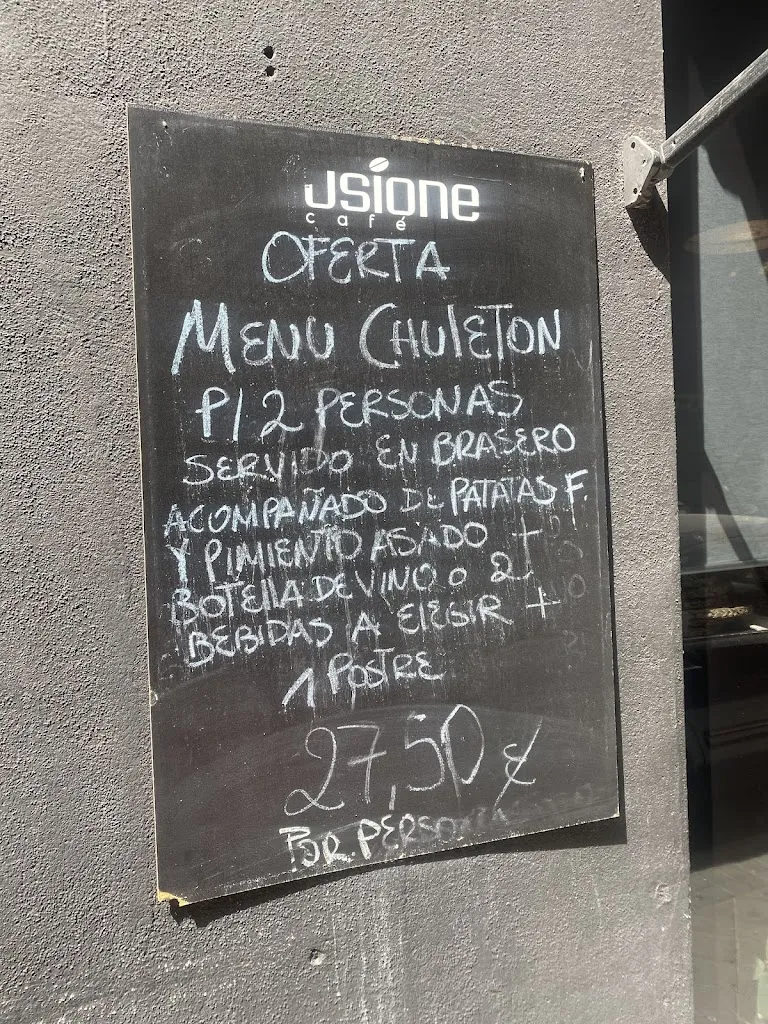 usione
café
OFERTA
MENU CHULETON
P/ 2 PERSONAS
SERVIDO EN BRASERO
ACOMPAÑADO DE PATATAS F.
Y PIMIENTO ASADO +
BOTELLA DE VINO o 2
BEBIDAS A ELEGIR +
1 POSTRE
27,50 €
POR PERSONA